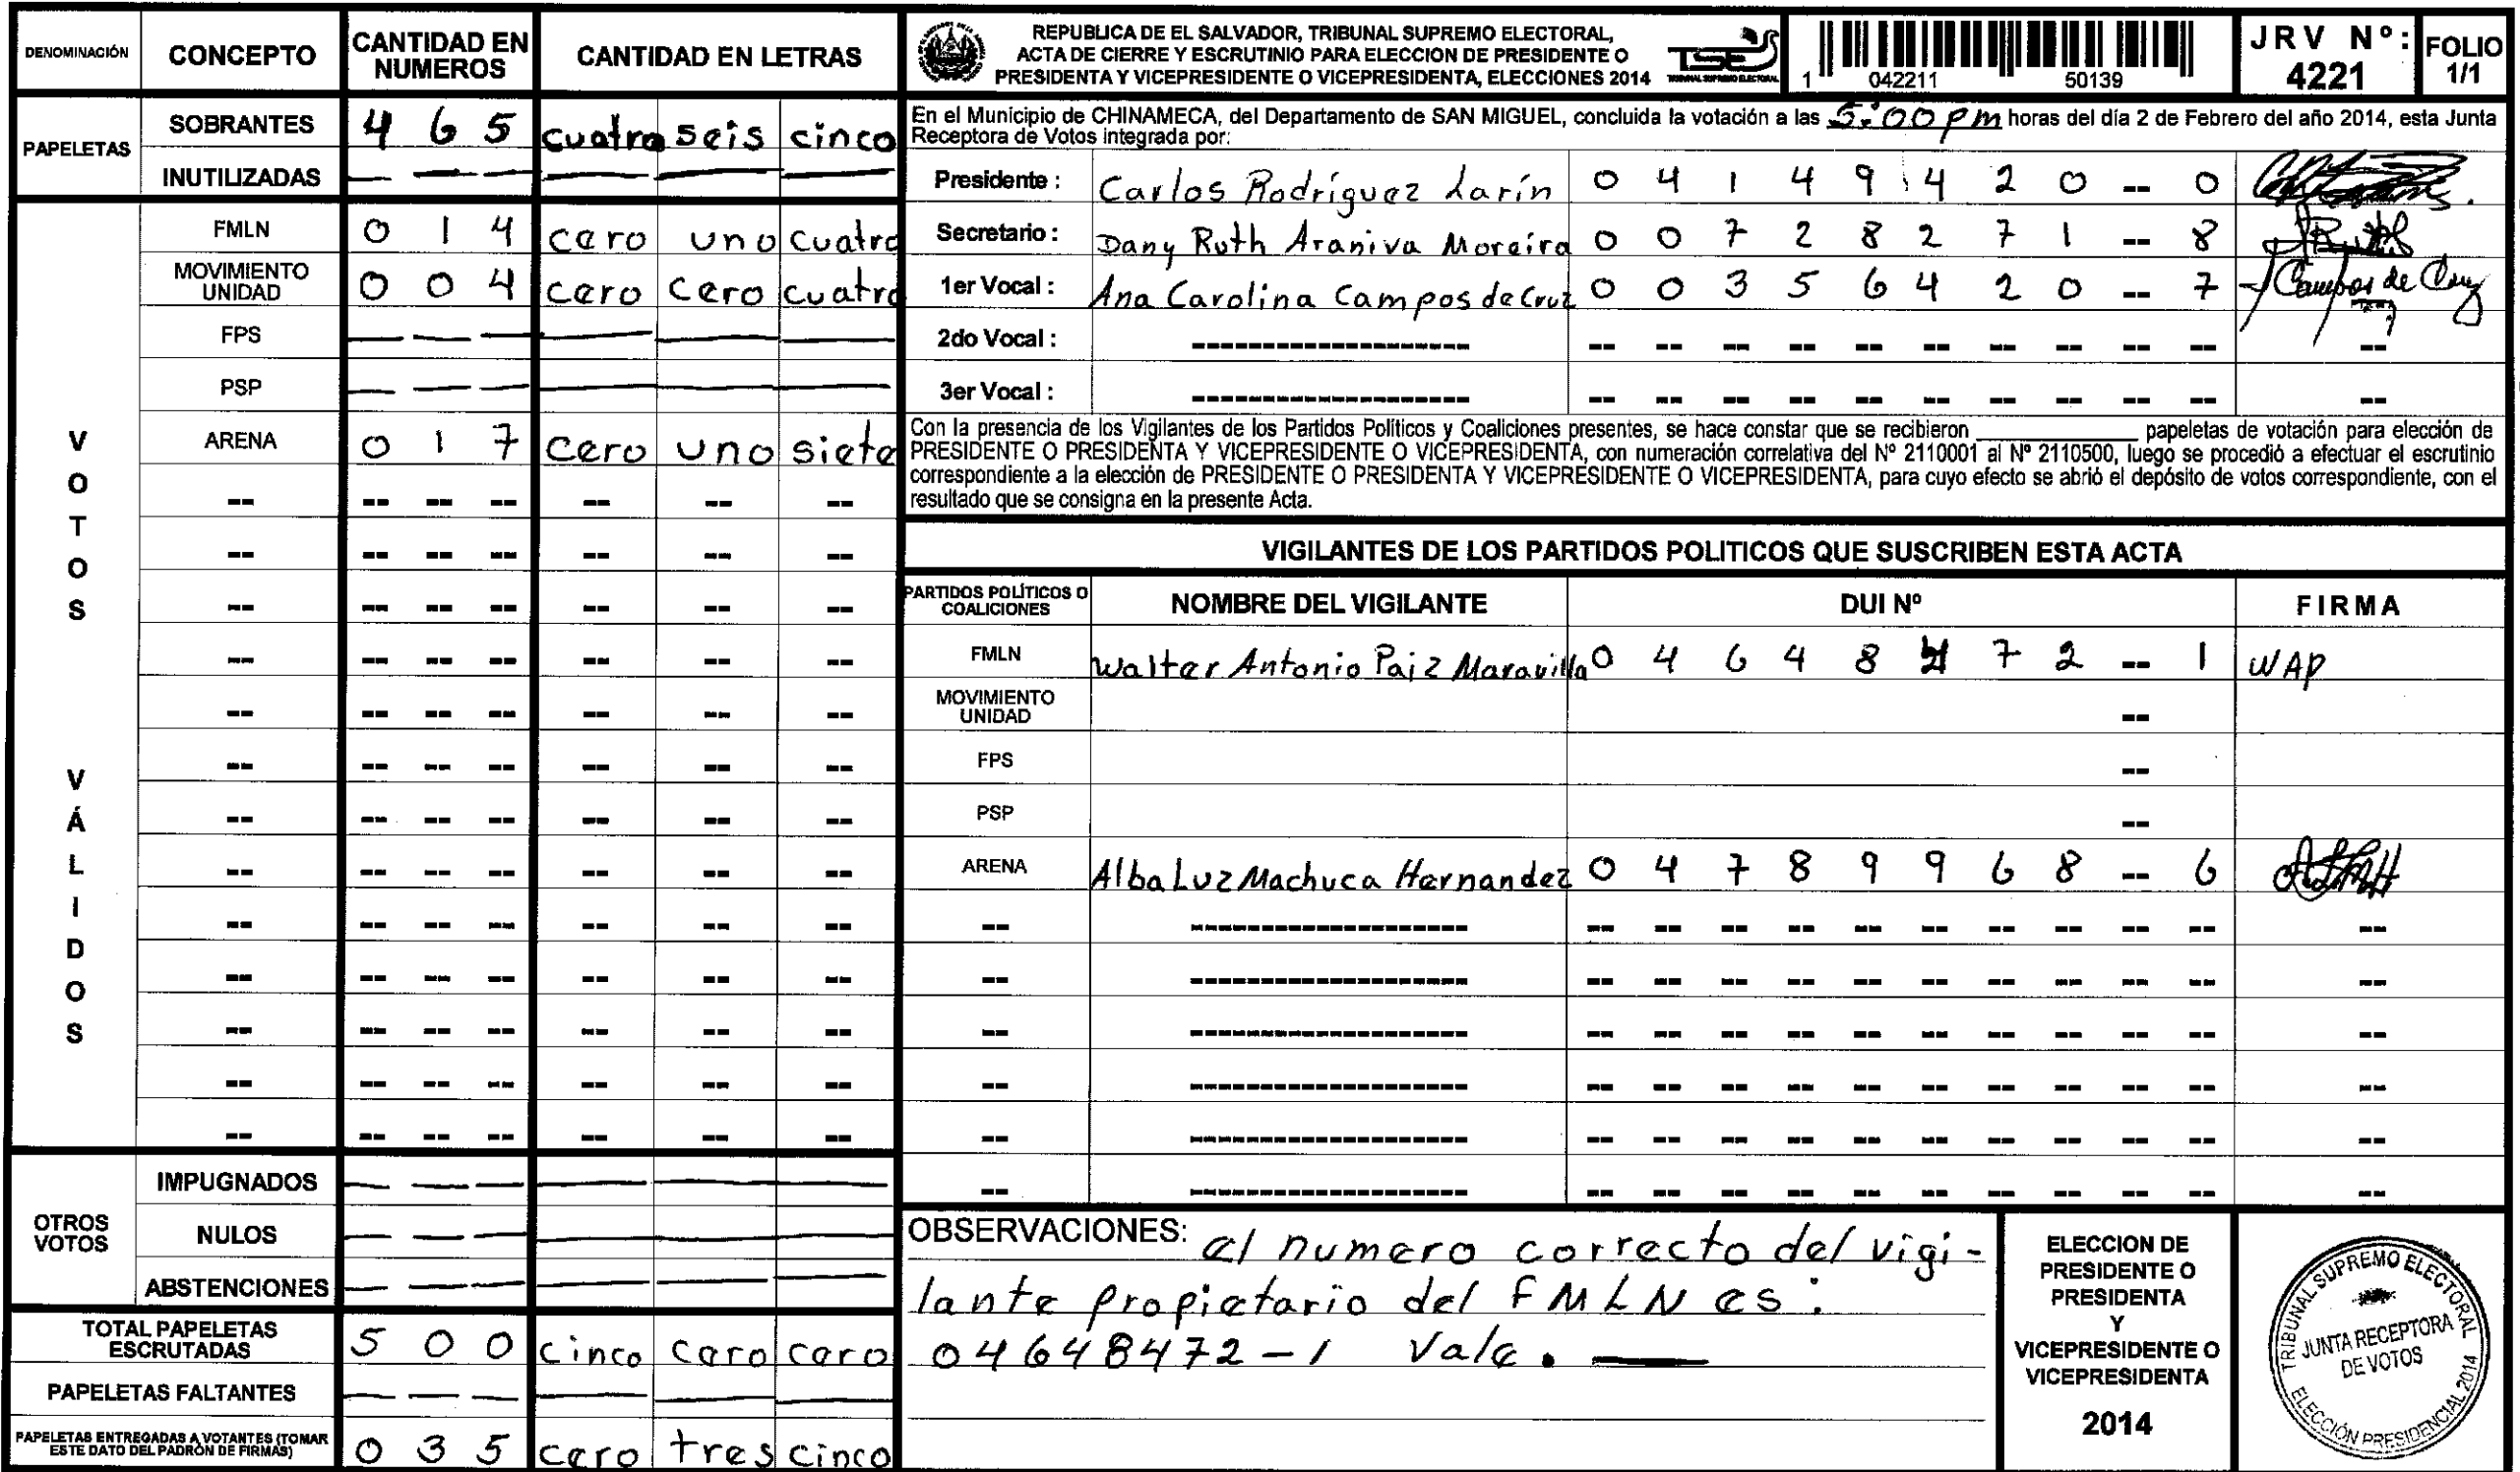 DENOMINACIÓN CONCEPTO CANTIDAD EN NUMEROS CANTIDAD EN LETRAS
PAPELETAS
SOBRANTES 4 6 5 cuatro seis cinco
INUTILIZADAS — — — — — —
VOTOS VÁLIDOS
FMLN 0 1 4 cero uno cuatro
MOVIMIENTO UNIDAD 0 0 4 cero cero cuatro
FPS — — — — — —
PSP — — — — — —
ARENA 0 1 7 cero uno siete
-- -- -- -- -- -- --
-- -- -- -- -- -- --
-- -- -- -- -- -- --
-- -- -- -- -- -- --
-- -- -- -- -- -- --
-- -- -- -- -- -- --
-- -- -- -- -- -- --
-- -- -- -- -- -- --
-- -- -- -- -- -- --
-- -- -- -- -- -- --
-- -- -- -- -- -- --
-- -- -- -- -- -- --
-- -- -- -- -- -- --
OTROS VOTOS
IMPUGNADOS — — — — — —
NULOS — — — — — —
ABSTENCIONES — — — — — —
TOTAL PAPELETAS ESCRUTADAS 5 0 0 cinco cero cero
PAPELETAS FALTANTES — — — — — —
PAPELETAS ENTREGADAS A VOTANTES (TOMAR ESTE DATO DEL PADRÓN DE FIRMAS) 0 3 5 cero tres cinco
REPUBLICA DE EL SALVADOR, TRIBUNAL SUPREMO ELECTORAL,
ACTA DE CIERRE Y ESCRUTINIO PARA ELECCION DE PRESIDENTE O
PRESIDENTA Y VICEPRESIDENTE O VICEPRESIDENTA, ELECCIONES 2014
TSE
TRIBUNAL SUPREMO ELECTORAL
1 042211 50139
JRV Nº: 4221
FOLIO 1/1
En el Municipio de CHINAMECA, del Departamento de SAN MIGUEL, concluida la votación a las 5:00 pm horas del día 2 de Febrero del año 2014, esta Junta
Receptora de Votos integrada por:
Presidente : Carlos Rodríguez Larín 0 4 1 4 9 4 2 0 -- 0
Secretario : Dany Ruth Araniva Moreira 0 0 7 2 8 2 7 1 -- 8
1er Vocal : Ana Carolina Campos de Cruz 0 0 3 5 6 4 2 0 -- 7 Campos de Cruz
2do Vocal : -------------------- -- -- -- -- -- -- -- -- -- -- --
3er Vocal : -------------------- -- -- -- -- -- -- -- -- -- -- --
Con la presencia de los Vigilantes de los Partidos Políticos y Coaliciones presentes, se hace constar que se recibieron ____________ papeletas de votación para elección de
PRESIDENTE O PRESIDENTA Y VICEPRESIDENTE O VICEPRESIDENTA, con numeración correlativa del Nº 2110001 al Nº 2110500, luego se procedió a efectuar el escrutinio
correspondiente a la elección de PRESIDENTE O PRESIDENTA Y VICEPRESIDENTE O VICEPRESIDENTA, para cuyo efecto se abrió el depósito de votos correspondiente, con el
resultado que se consigna en la presente Acta.
VIGILANTES DE LOS PARTIDOS POLITICOS QUE SUSCRIBEN ESTA ACTA
PARTIDOS POLÍTICOS O COALICIONES NOMBRE DEL VIGILANTE DUI Nº FIRMA
FMLN Walter Antonio Paiz Maravilla 0 4 6 4 8 4 7 2 -- 1 WAP
MOVIMIENTO UNIDAD --
FPS --
PSP --
ARENA Alba Luz Machuca Hernandez 0 4 7 8 9 9 6 8 -- 6
-- -------------------- -- -- -- -- -- -- -- -- -- -- --
-- -------------------- -- -- -- -- -- -- -- -- -- -- --
-- -------------------- -- -- -- -- -- -- -- -- -- -- --
-- -------------------- -- -- -- -- -- -- -- -- -- -- --
-- -------------------- -- -- -- -- -- -- -- -- -- -- --
-- -------------------- -- -- -- -- -- -- -- -- -- -- --
OBSERVACIONES: el numero correcto del vigi-
lante propietario del FMLN es:
04648472-1 Vale. —
ELECCION DE
PRESIDENTE O
PRESIDENTA
Y
VICEPRESIDENTE O
VICEPRESIDENTA
2014
TRIBUNAL SUPREMO ELECTORAL
JUNTA RECEPTORA
DE VOTOS
ELECCIÓN PRESIDENCIAL 2014